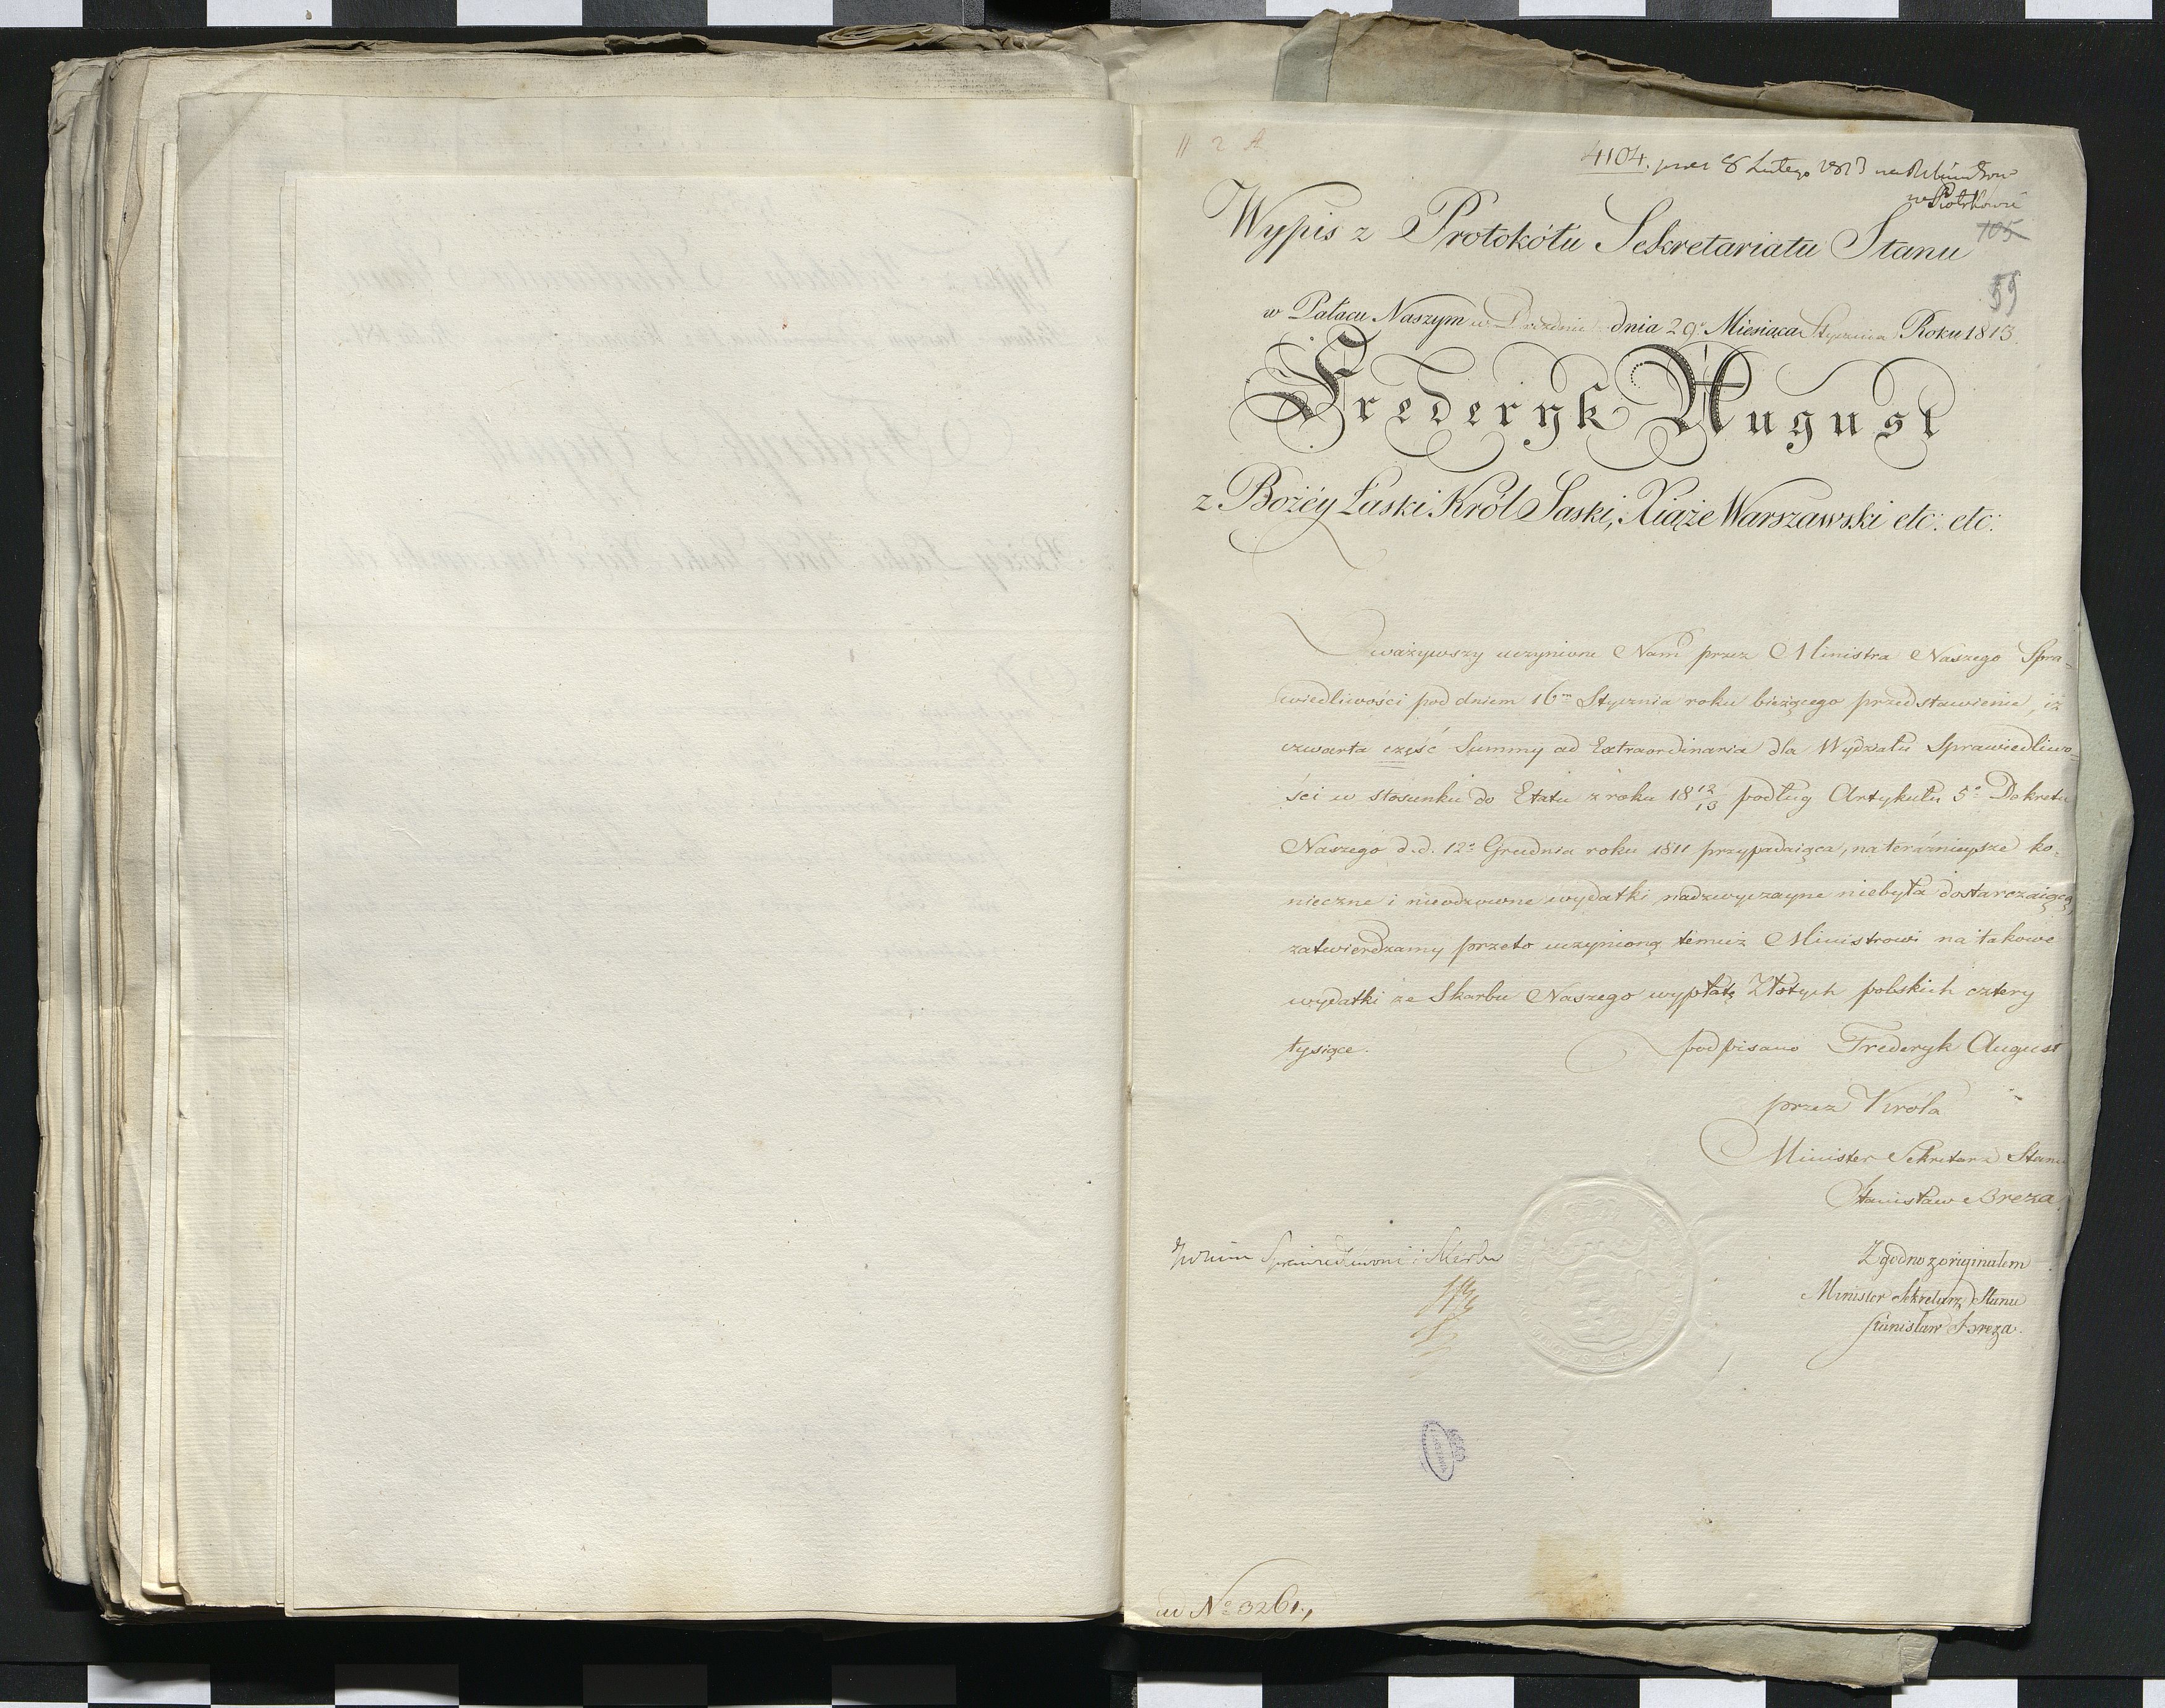 11 2 A
4104. prez 8 Lutego 1813
w Piotrkowie
Wypis z Protokółu Sekretariatu Stanu
105
59
w Pałacu Naszym w Dreźnie dnia 29. Miesiąca Stycznia Roku 1813.
Frederyk August
z Bożéy Łaski Król Saski, Xiąże Warszawski etc: etc:
Zważywszy uczynione Nam przez Ministra Naszego Spra-
wiedliwości pod dniem 16m Stycznia roku bieżącego przedstawienie, iż
czwarta część Summy ad Extraordinaria dla Wydziału Sprawiedliwo=
ści w stosunku do Etatu z roku 18 12/13 podług Artykułu 5o Dekretu
Naszego d.d. 12o Grudnia roku 1811 przypadaiąca, na teraźnieysze ko-
nieczne i nieodzowne wydatki nadzwyczayne niebyła dostarczaiącą,
zatwierdzamy przeto uczynioną temuż Ministrowi na takowe
wydatki ze Skarbu Naszego wypłatę Złotych polskich cztery
tysiące. podpisano Frederyk August
przez Króla
Minister Sekretarz Stanu
Stanisław Breza
Zgodno z originałem
Minister Sekretarz Stanu
Stanisław Breza.
ad No 3261.,